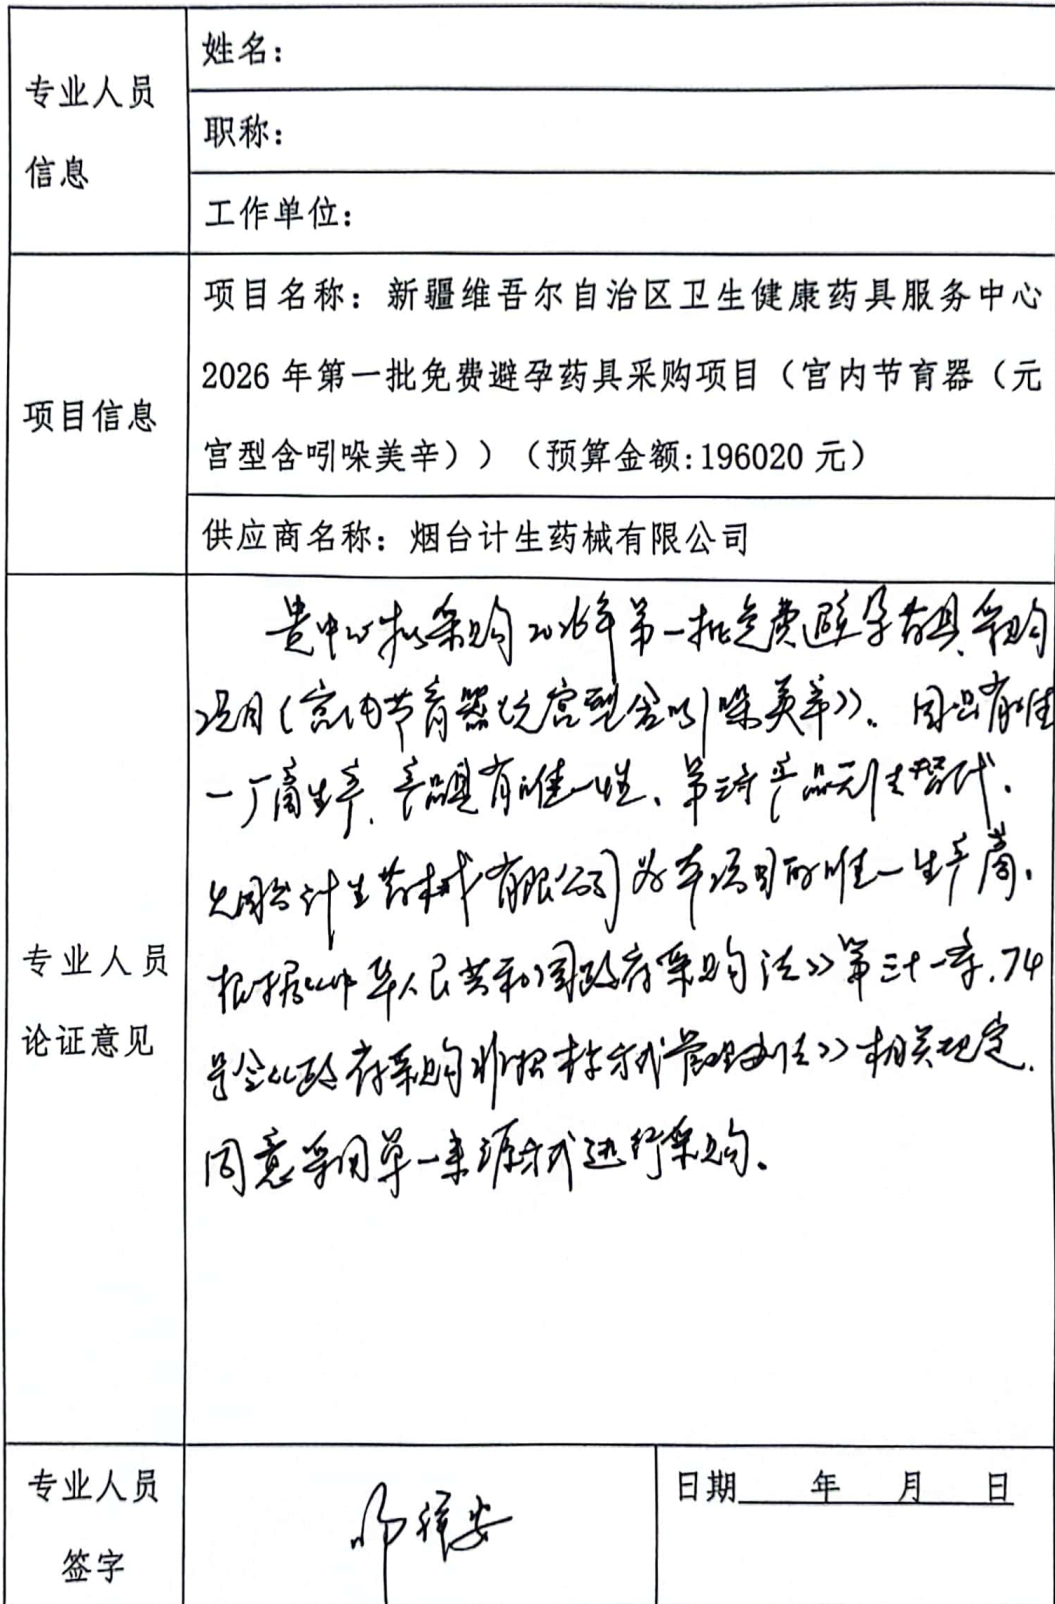 专业人员
信息
姓名：
职称：
工作单位：
项目信息
项目名称：新疆维吾尔自治区卫生健康药具服务中心
2026年第一批免费避孕药具采购项目（宫内节育器（元
宫型含吲哚美辛））（预算金额:196020元）
供应商名称：烟台计生药械有限公司
专业人员
论证意见
贵中心拟采购2026年第一批免费避孕药具采购
项目(宫内节育器(元宫型含吲哚美辛))。因只有唯
一厂商生产，产品具有唯一性、产品无法替代。
烟台计生药械有限公司为本项目的唯一生产商。
根据《中华人民共和国政府采购法》第三十一条,74
号令《政府采购非招标方式管理办法》相关规定,
同意采用单一来源方式进行采购。
专业人员
签字
日期 年 月 日